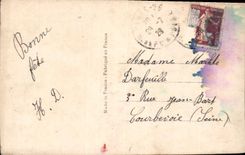 Bonne
fête
H. D.
Made in France - Fabriqué en France
Madame Marthe
Darfeuille
3 Rue Jean-Bart
Courbevoie (Seine)